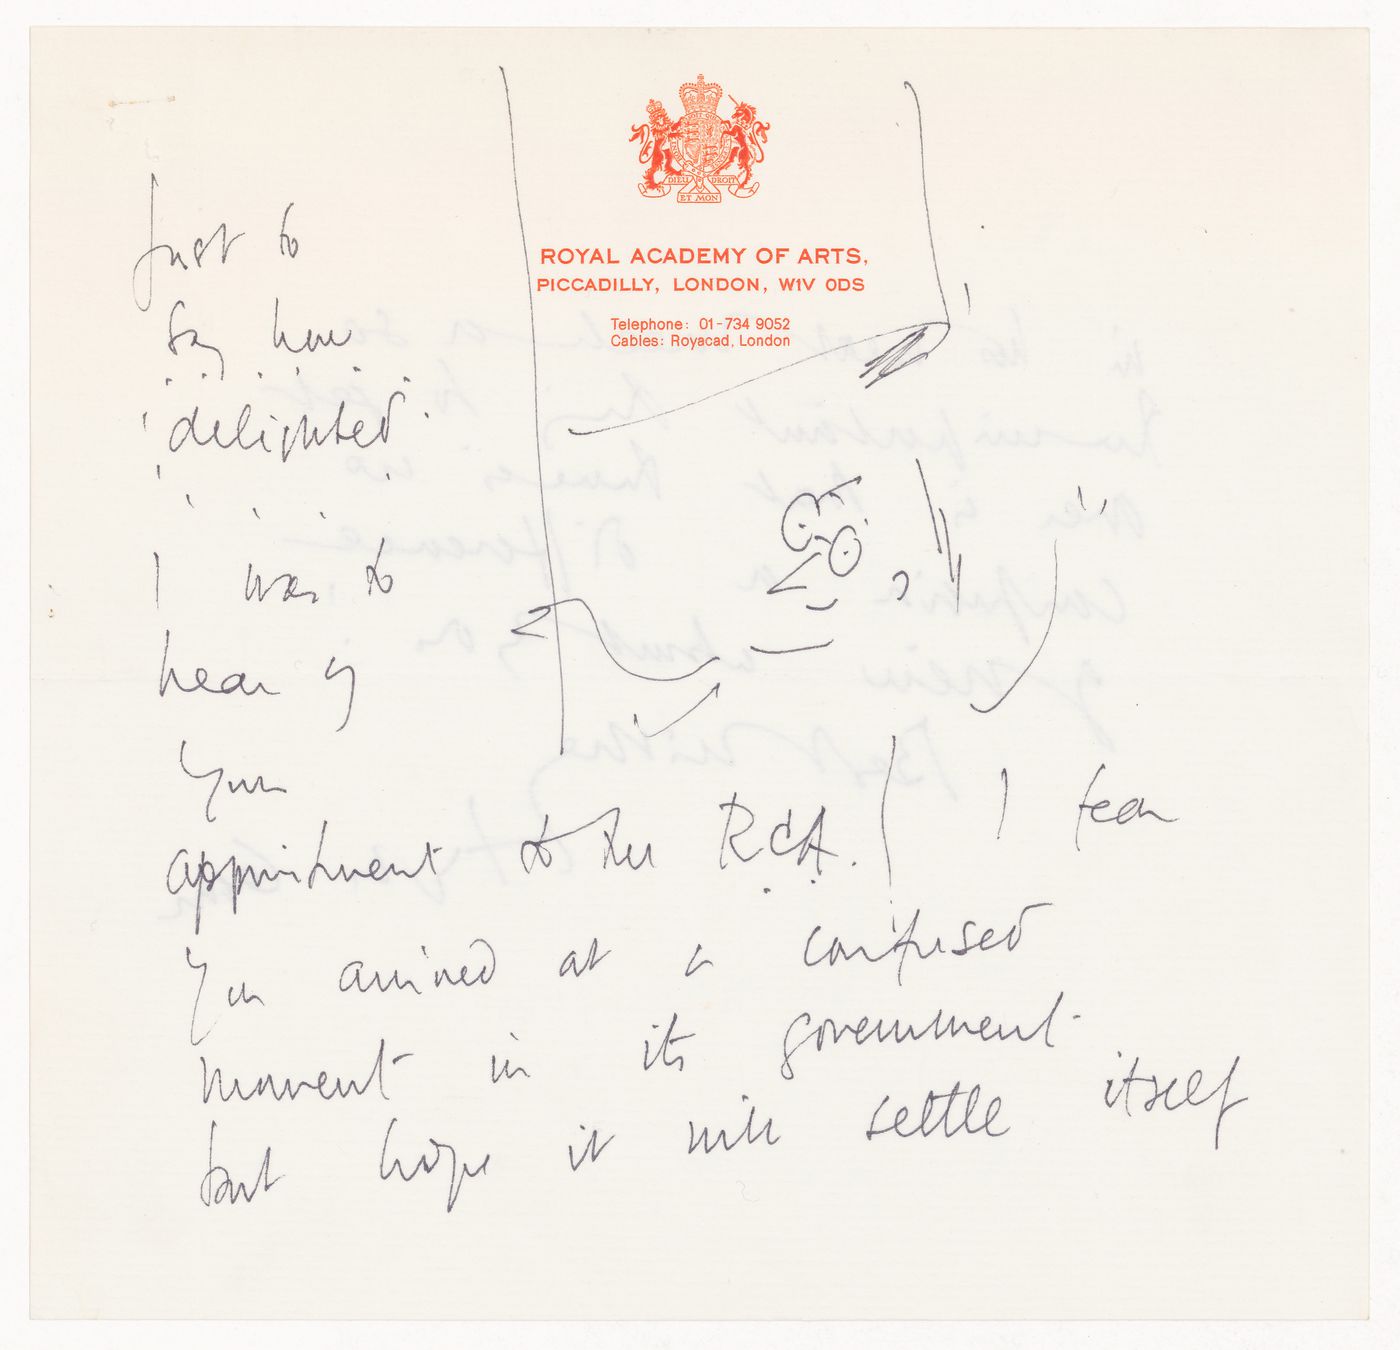 DIEU DROIT
ET MON
ROYAL ACADEMY OF ARTS,
PICCADILLY, LONDON, W1V 0DS
Telephone: 01-734 9052
Cables: Royacad, London
Just to
say how
delighted
I was to
hear of
your
appointment to the RCA. I fear
you arrived at a confused
moment in its government
but hope it will settle itself